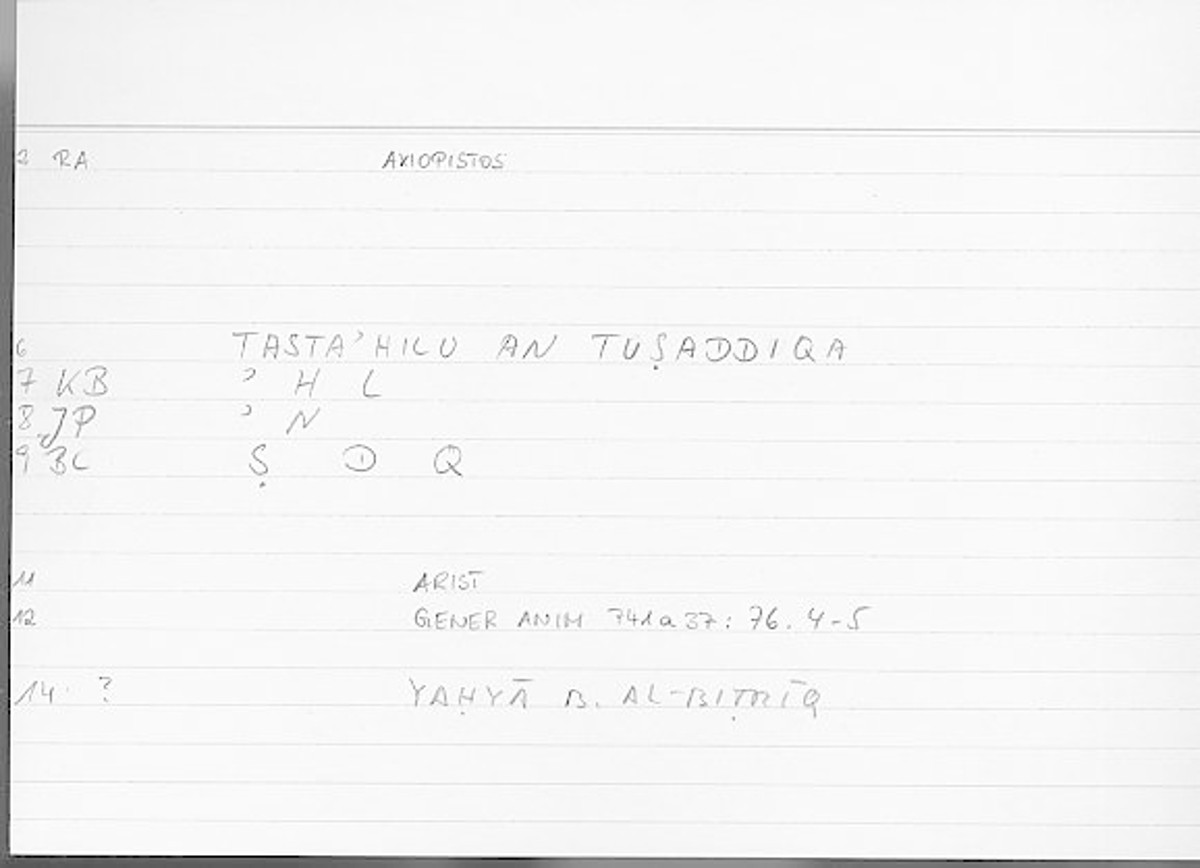 2 RA AXIOPISTOS
6 TASTAʾHILU AN TUṢADDIQA
7 KB ʾ H L
8 JP ʾ N
9 BC Ṣ D Q
11 ARIST
12 GENER ANIM 741a37: 76. 4-5
14. ? YAḤYĀ B. AL-BIṬRĪQ